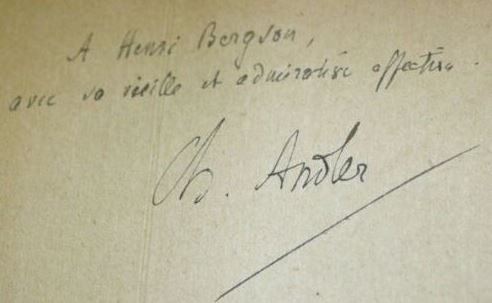 A Henri Bergson,
avec sa vieille et admirative affection.
Ch. Andler